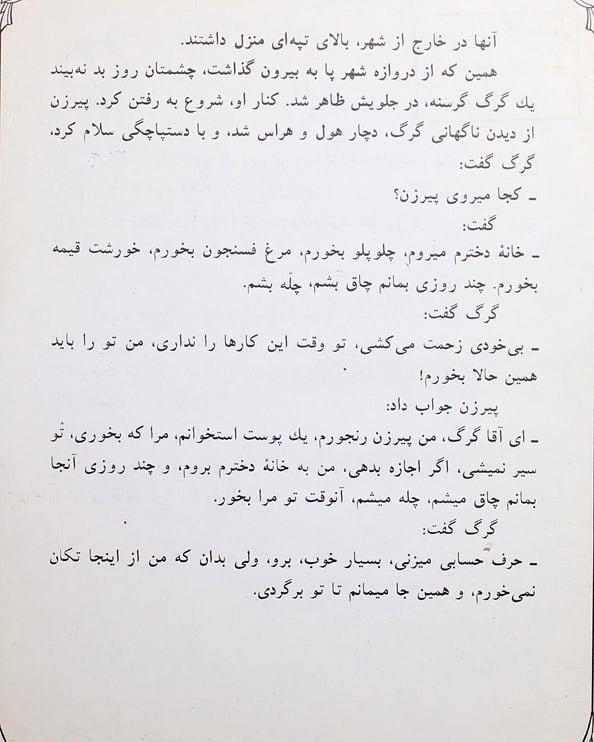 آنها در خارج از شهر، بالای تپه‌ای منزل داشتند.
همین که از دروازه شهر پا به بیرون گذاشت، چشمتان روز بد نه‌بیند
یك گرگ گرسنه، در جلویش ظاهر شد. کنار او، شروع به رفتن کرد. پیرزن
از دیدن ناگهانی گرگ، دچار هول و هراس شد، و با دستپاچگی سلام کرد،
گرگ گفت:
ـ کجا میروی پیرزن؟
گفت:
ـ خانهٔ دخترم میروم، چلوپلو بخورم، مرغ فسنجون بخورم، خورشت قیمه
بخورم. چند روزی بمانم چاق بشم، چلّه بشم.
گرگ گفت:
ـ بی‌خودی زحمت می‌کشی، تو وقت این کارها را نداری، من تو را باید
همین حالا بخورم!
پیرزن جواب داد:
ـ ای آقا گرگ، من پیرزن رنجورم، یك پوست استخوانم، مرا که بخوری، تو
سیر نمیشی، اگر اجازه بدهی، من به خانهٔ دخترم بروم، و چند روزی آنجا
بمانم چاق میشم، چله میشم، آنوقت تو مرا بخور.
گرگ گفت:
ـ حرف حسابی میزنی، بسیار خوب، برو، ولی بدان که من از اینجا تکان
نمی‌خورم، و همین جا میمانم تا تو برگردی.